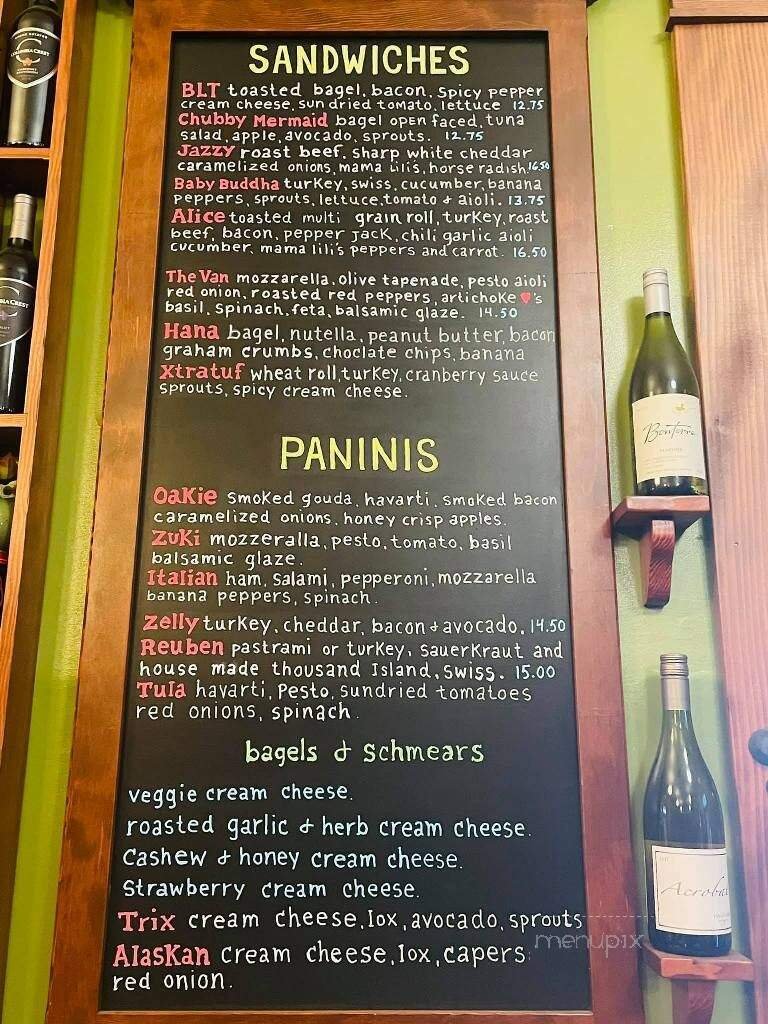 SANDWICHES
BLT toasted bagel, bacon, spicy pepper
cream cheese, sun dried tomato, lettuce 12.75
Chubby Mermaid bagel open faced, tuna
salad, apple, avocado, sprouts. 12.75
Jazzy roast beef, sharp white cheddar
caramelized onions, mama lili's, horse radish 16.50
Baby Buddha turkey, swiss, cucumber, banana
peppers, sprouts, lettuce, tomato & aioli. 13.75
Alice toasted multi grain roll, turkey, roast
beef, bacon, pepper jack, chili garlic aioli
cucumber, mama lili's peppers and carrot. 16.50
The Van mozzarella, olive tapenade, pesto aioli
red onion, roasted red peppers, artichoke ♥'s
basil, spinach, feta, balsamic glaze. 14.50
Hana bagel, nutella, peanut butter, bacon
graham crumbs, choclate chips, banana
Xtratuf wheat roll, turkey, cranberry sauce
sprouts, spicy cream cheese.
PANINIS
Oakie smoked gouda, havarti, smoked bacon
caramelized onions, honey crisp apples.
Zuki mozzeralla, pesto, tomato, basil
balsamic glaze.
Italian ham, salami, pepperoni, mozzarella
banana peppers, spinach.
Zelly turkey, cheddar, bacon & avocado. 14.50
Reuben pastrami or turkey, sauerkraut and
house made thousand Island, swiss. 15.00
Tula havarti, pesto, sundried tomatoes
red onions, spinach.
bagels & schmears
veggie cream cheese.
roasted garlic & herb cream cheese.
Cashew & honey cream cheese.
Strawberry cream cheese.
Trix cream cheese, lox, avocado, sprouts
Alaskan cream cheese, lox, capers
red onion.
menupix
Bonterra
Acrobat